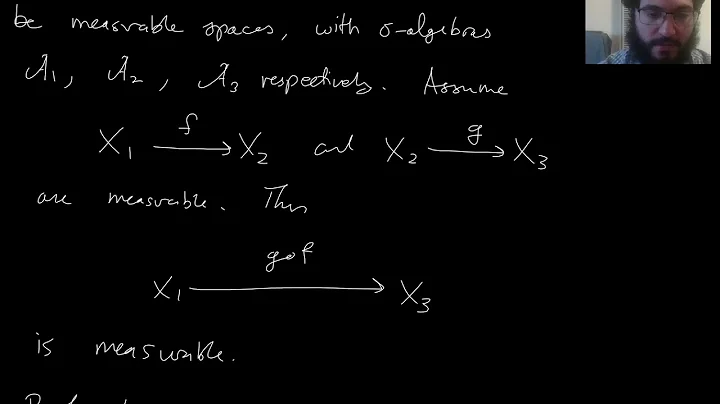 be measurable spaces, with σ-algebras
A₁, A₂, A₃ respectively. Assume
X₁ —f→ X₂ and X₂ —g→ X₃
are measurable. Then
X₁ —g∘f→ X₃
is measurable.